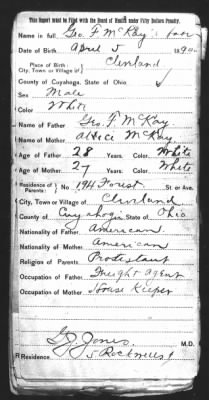 This Report must be Filed with the Board of Health under Fifty Dollars Penalty.
Name in full Geo. F McKay's son
Date of Birth April 5 189
Place of Birth Cleveland
City, Town or Village of
County of Cuyahoga, State of Ohio.
Sex Male
Color White
Name of Father Geo. F McKay
Name of Mother McKay
Age of Father 28 Years. Color White
Age of Mother 27 Years. Color White
Residence of Parents: No 194 Forest St. or Ave.
City, Town or Village of Cleveland
County of Cuyahoga State of Ohio
Nationality of Father American.
Nationality of Mother American
Religion of Parents Protestant
Occupation of Father Freight Agent
Occupation of Mother House Keeper
Jones M.D.
Residence